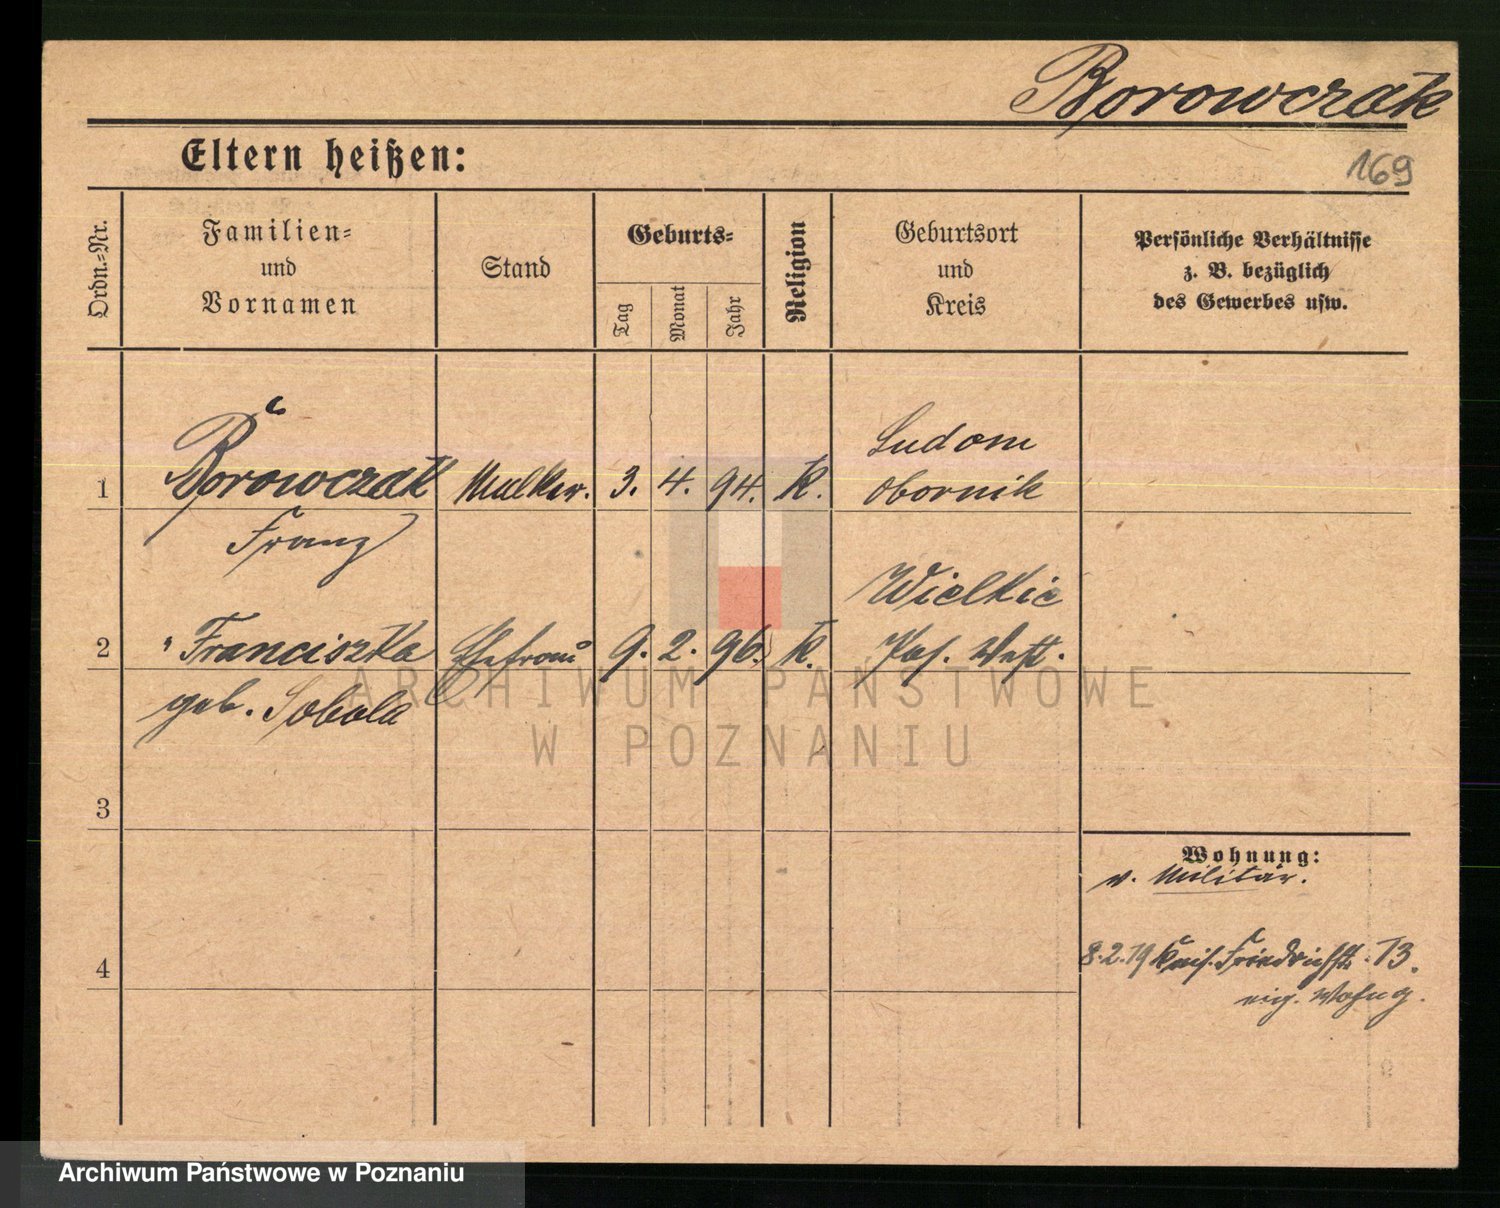 Borowczak
Eltern heißen:
169
Ordn.-Nr.
Familien-
und
Vornamen
Stand
Geburts-
Tag
Monat
Jahr
Religion
Geburtsort
und
Kreis
Persönliche Verhältnisse
z. B. bezüglich
des Gewerbes usw.
Ludom
1 Borowczak 3. 4. 94. k. Obornik
Franz
Wielkie
2 " Franciszka Ehefrau 9. 2. 96. k. Pos. West.
geb. Sobola
3
Wohnung:
v. Militär.
4
8.2.19 Kais. Friedrichstr. 13.
eig. Wohng.
ARCHIWUM PAŃSTWOWE
W POZNANIU
Archiwum Państwowe w Poznaniu